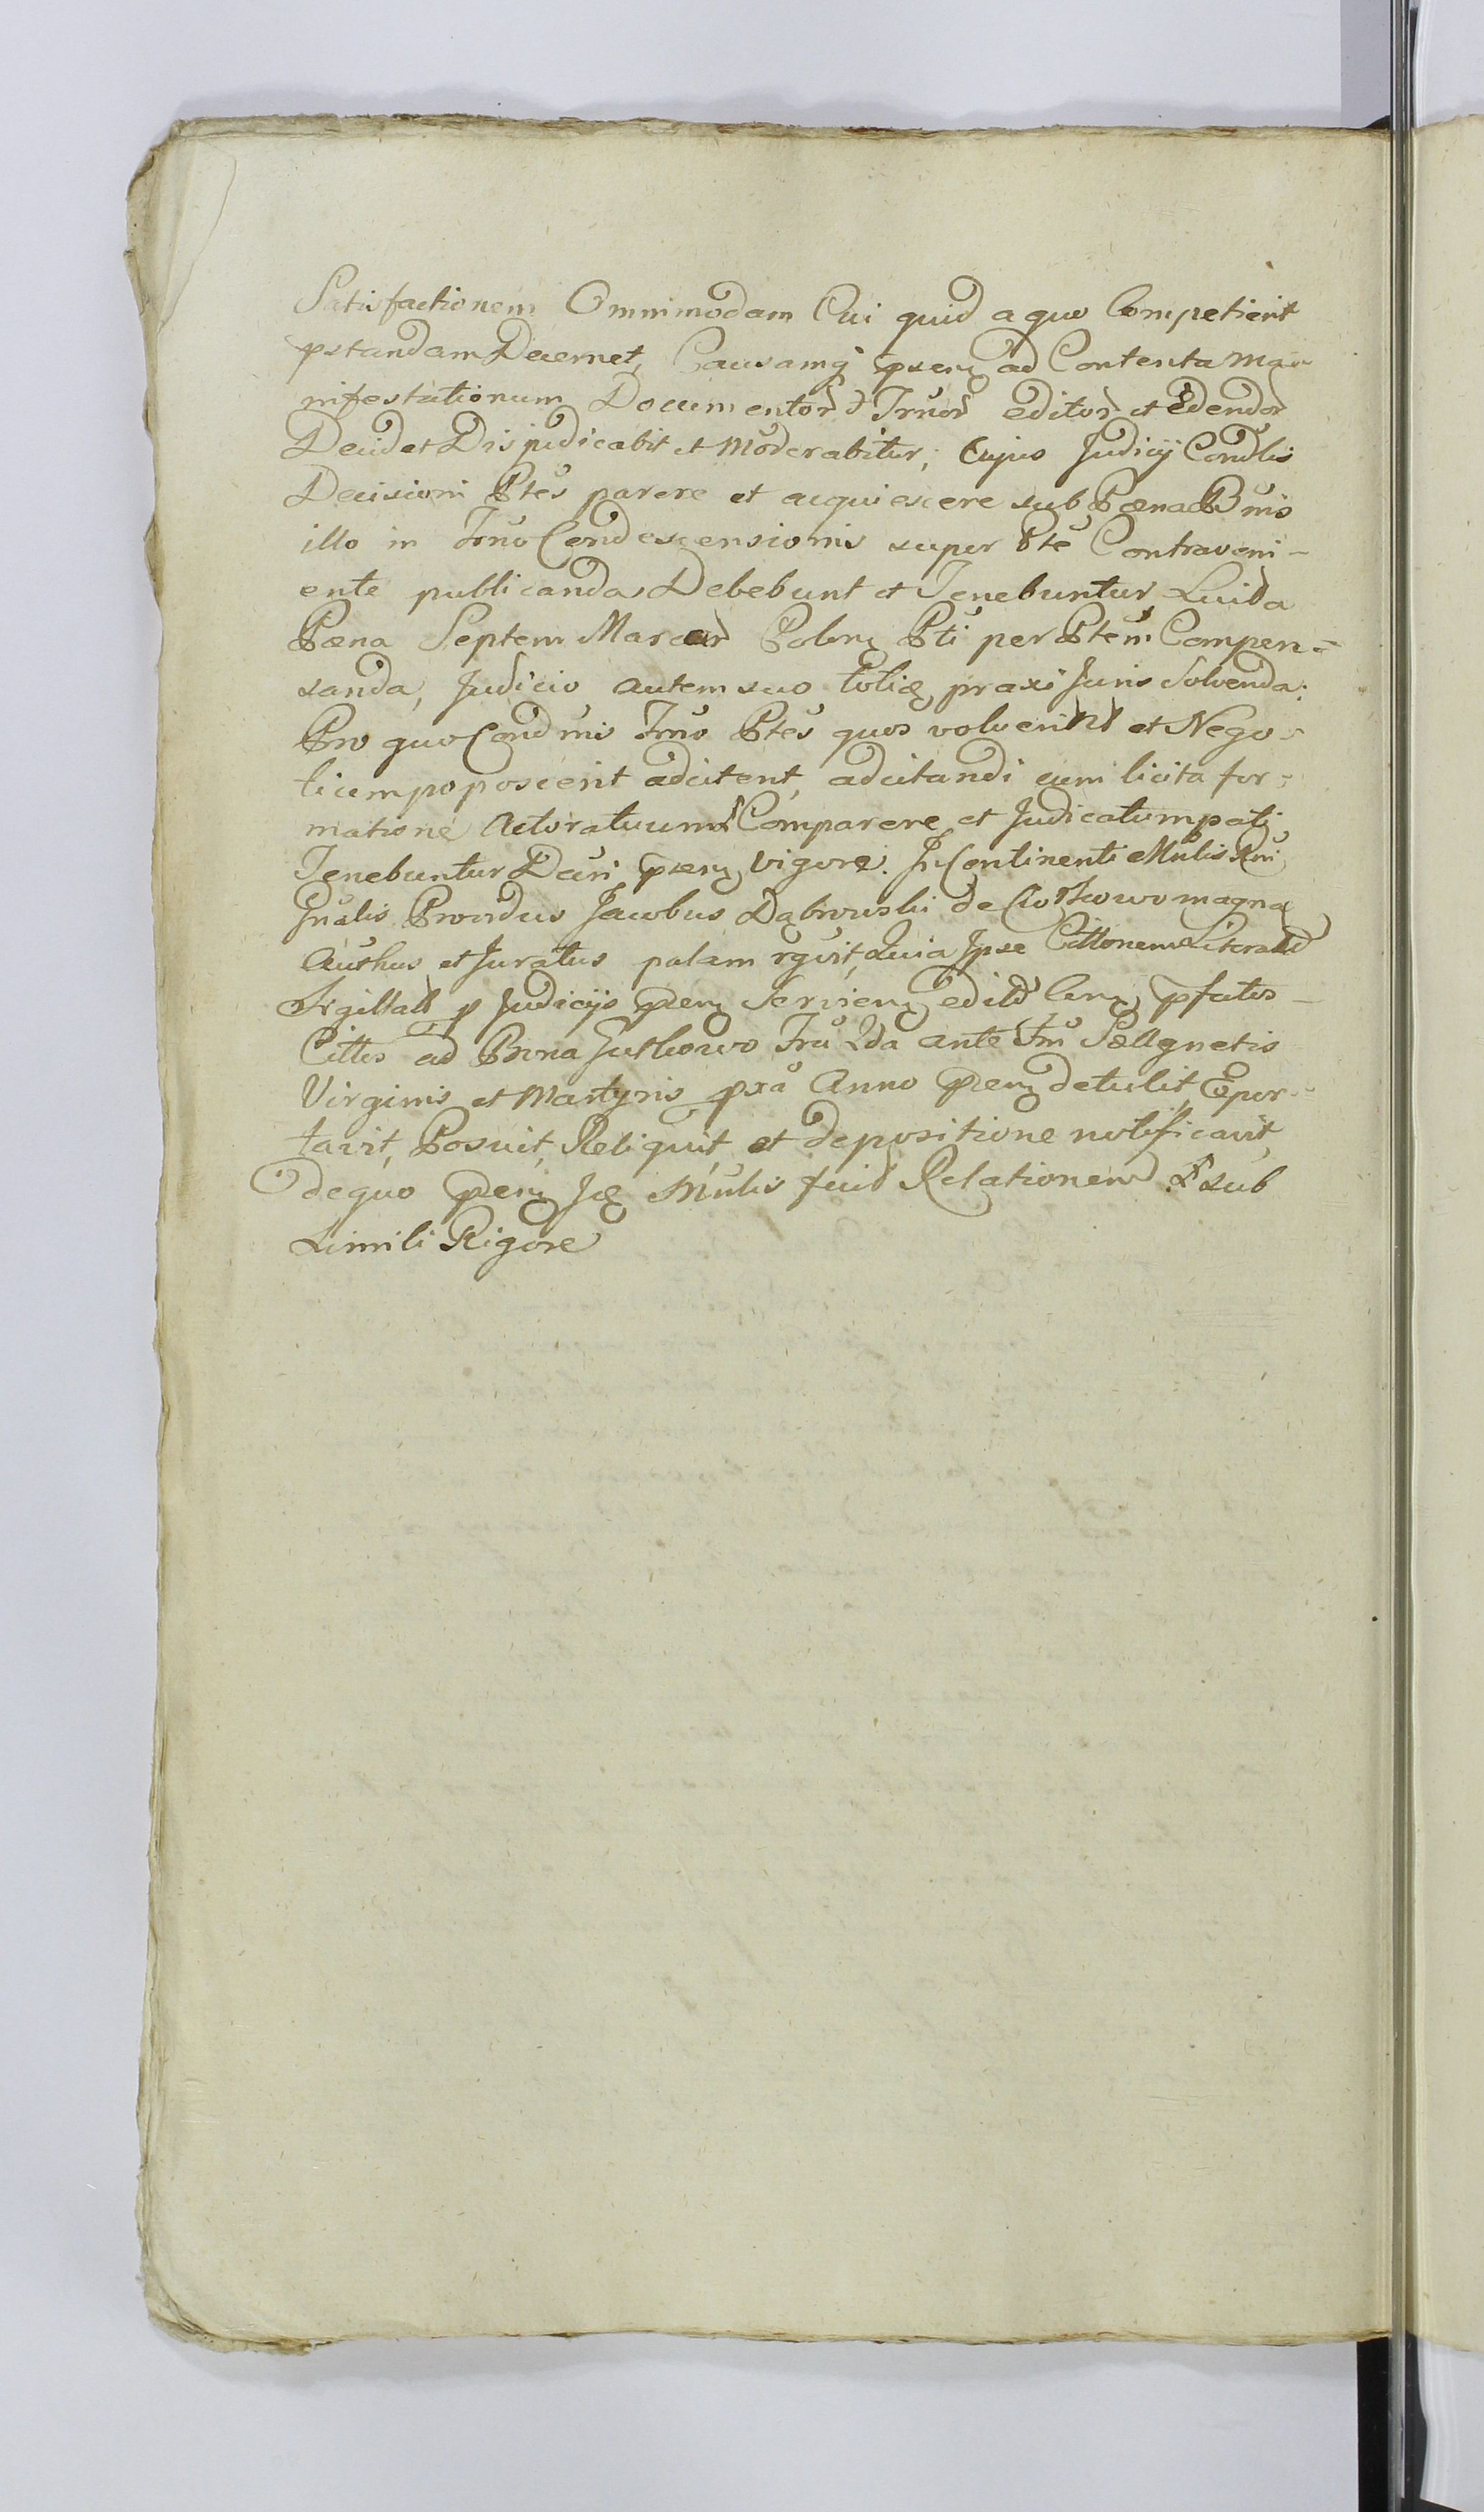 Satisfactionem Omnimodam Cui quid a quo Competierit
pstandam Decernet, Causamq psen ad Contenta Ma
nifestationum Documentor Iruor editor et Edendor
Decidet Disjudicabit et Moderabitur, Cujus Judicij Condlis
Decisioni Ptes parere et acquiescere sub Pæna Bnis
illo in Trno Condescensionis super Pte Contraveni-
ente publicanda Debebunt et Tenebuntur Luida
Pæna Septem Marcar Polon Pti per Ptem Compen=
sanda, Judicio autem suo toties praxi Juris Solvenda.
Pro quo Condnis Trno Ptes quos voluerint et Nego
tium poposcerit adcitent, adcitandi cum licita for=
matione Actoratuum Comparere et Judicatum pati
Tenebuntur Dcuri psen vigore. In Continenti Mnlis Rni
Gnalis Providus Jacobus Dąbrowski de magna
Authus et Juratus palam rgvit, Quia Ipse Cittonem Literal
Sigillat p Judicijs psen Servien edit pfatis
Cittis ad Bona Gutkowo Fru 2da ante Fm Sæ Agnetis
Virginis et Martyris pxa Anno psen detulit, Expor
tavit, Posuit, Reliquit, et depositione notificavit,
de quo psen Mnlis fecid Relationem sub
Simili Rigore